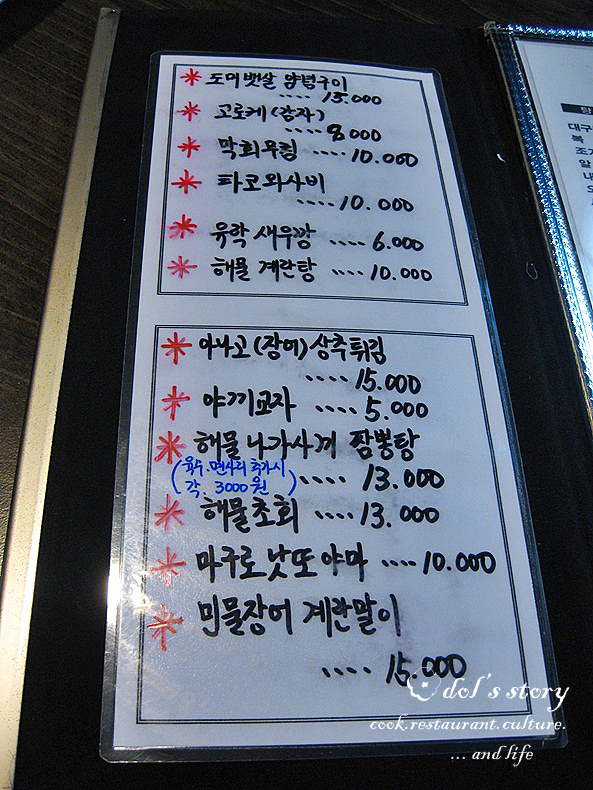 * 도미뱃살 양념구이
.... 15.000
* 고로케 (감자)
.... 8.000
* 막회무침 .... 10.000
* 타코와사비
.... 10.000
* 육학 새우깡 .... 6.000
* 해물 계란탕 .... 10.000
* 아나고 (장어) 상추튀김
.... 15.000
* 야끼교자 .... 5.000
* 해물 나가사끼 짬뽕탕
(육수.면사리 추가시
각. 3000원) .... 13.000
* 해물초회 .... 13.000
* 마구로 낫또 야마 .... 10.000
* 민물장어 계란말이
.... 15.000
대구
복
조기
알
내
dol's story
cook.restaurant.culture.
... and life